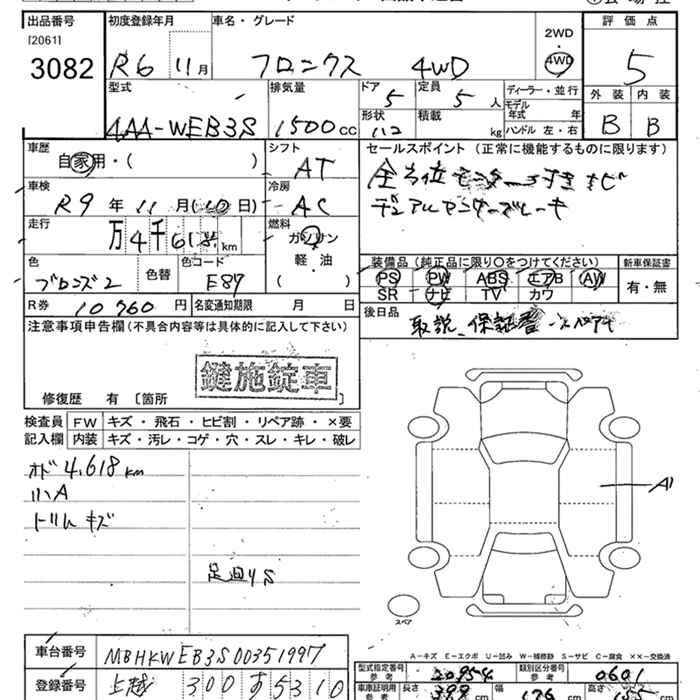 出品番号 初度登録年月 車名・グレード 2WD 4WD 評価点
[2061]
3082 R6 11月 フロンクス 4WD 5
型式 排気量 ドア 定員 ディーラー・並行 外装 内装
4AA-WEB3S 1500cc 5 5人 モデル年式 年
形状 積載 kg ハンドル 左・右 B B
車歴 シフト セールスポイント(正常に機能するものに限ります)
自家用・( ) AT 全方位モニター付きナビ
車検 冷房 デュアルセンサーブレーキ
R9年11月(10日) AC
走行 燃料
万4千618km ガソリン
軽・油
( )
色 色替 色コード 装備品(純正品に限り○をつけてください) 新車保証書
ブロンズ2 E87 PS PW ABS エアB AW 有・無
SR ナビ TV カワ
R券 10760円 名変通知期限 月 日 後日品
取説、保証書
注意事項申告欄(不具合内容等は具体的に記入して下さい)
鍵施錠車
修復歴 有 [箇所 ]
検査員 FW キズ・飛石・ヒビ割・リペア跡・×要
記入欄 内装 キズ・汚レ・コゲ・穴・スレ・キレ・破レ
オド4,618km
小A A1
トリムキズ
足回りS
スペア
A-キズ E-エクボ U-凹み W-補修跡 S-サビ C-腐食 ××-交換済
車台番号 MBHKWEB3S00351997
型式指定番号 参考 20954 類別区分番号 参考 0601
登録番号 上越 300 す5310
車庫証明用 参考 長さ 399 幅 176 高さ 155